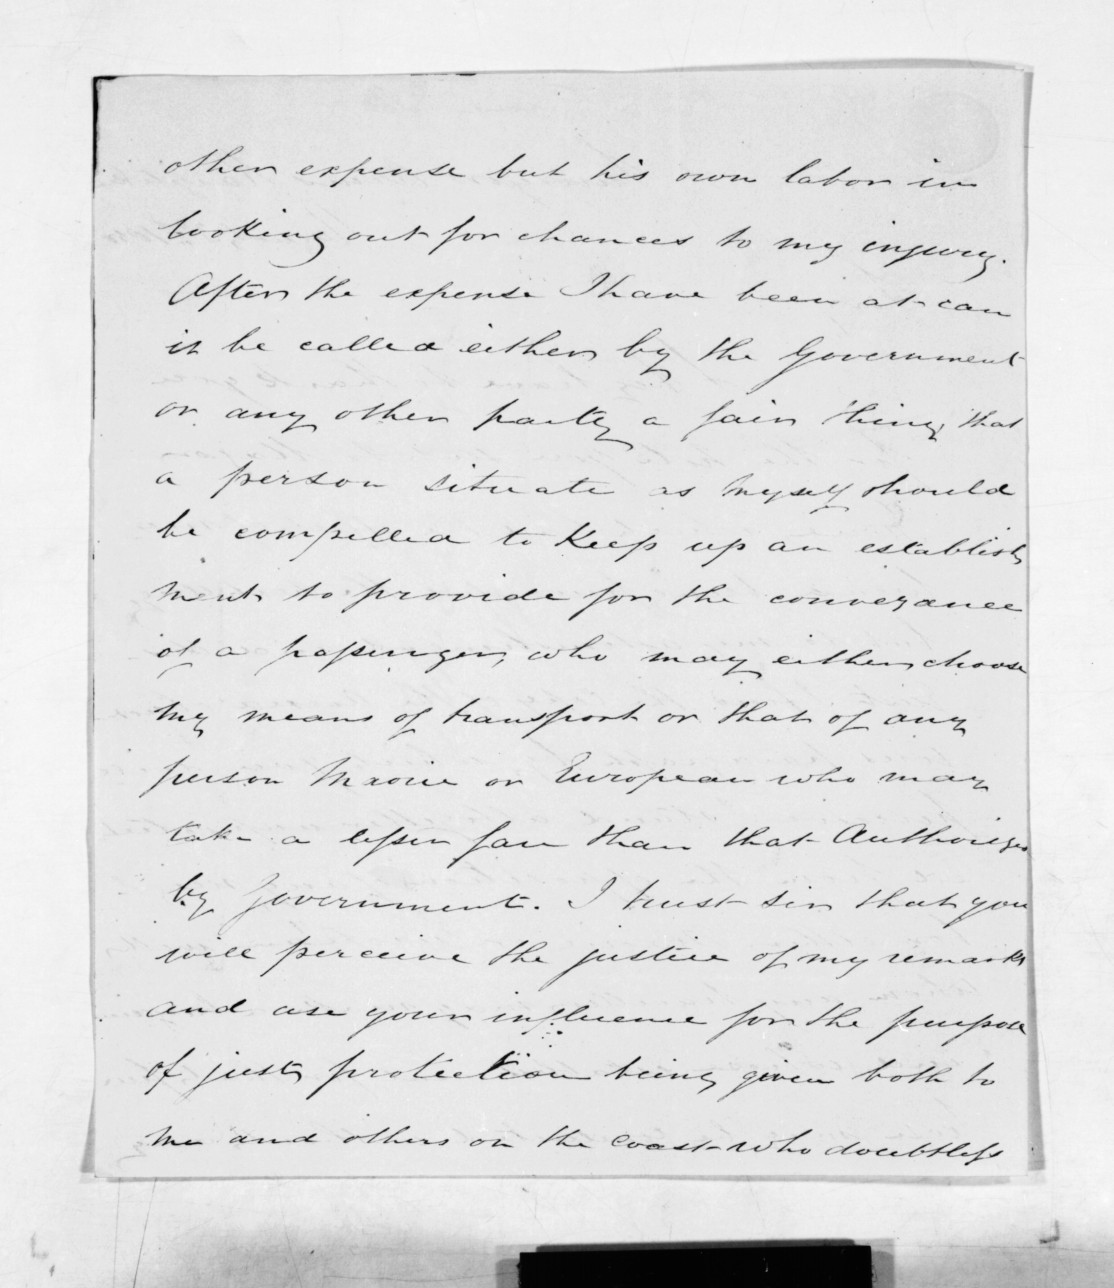 other expense but his own labor in
looking out for chances to my injury.
After the expense I have been at can
it be called either by the Government
or any other party a fair thing, that
a person situate as myself should
be compelled to keep up an establish
ment to provide for the conveyance
of a passenger, who may either choose
my means of transport or that of any
person Maorie or European who may
take a lesser fare than that Authorizes
by Government. I trust sir that you
will perceive the justice of my remarks
and use your influence for the purpose
of just protection being given both to
me and others on the coast who doubtless